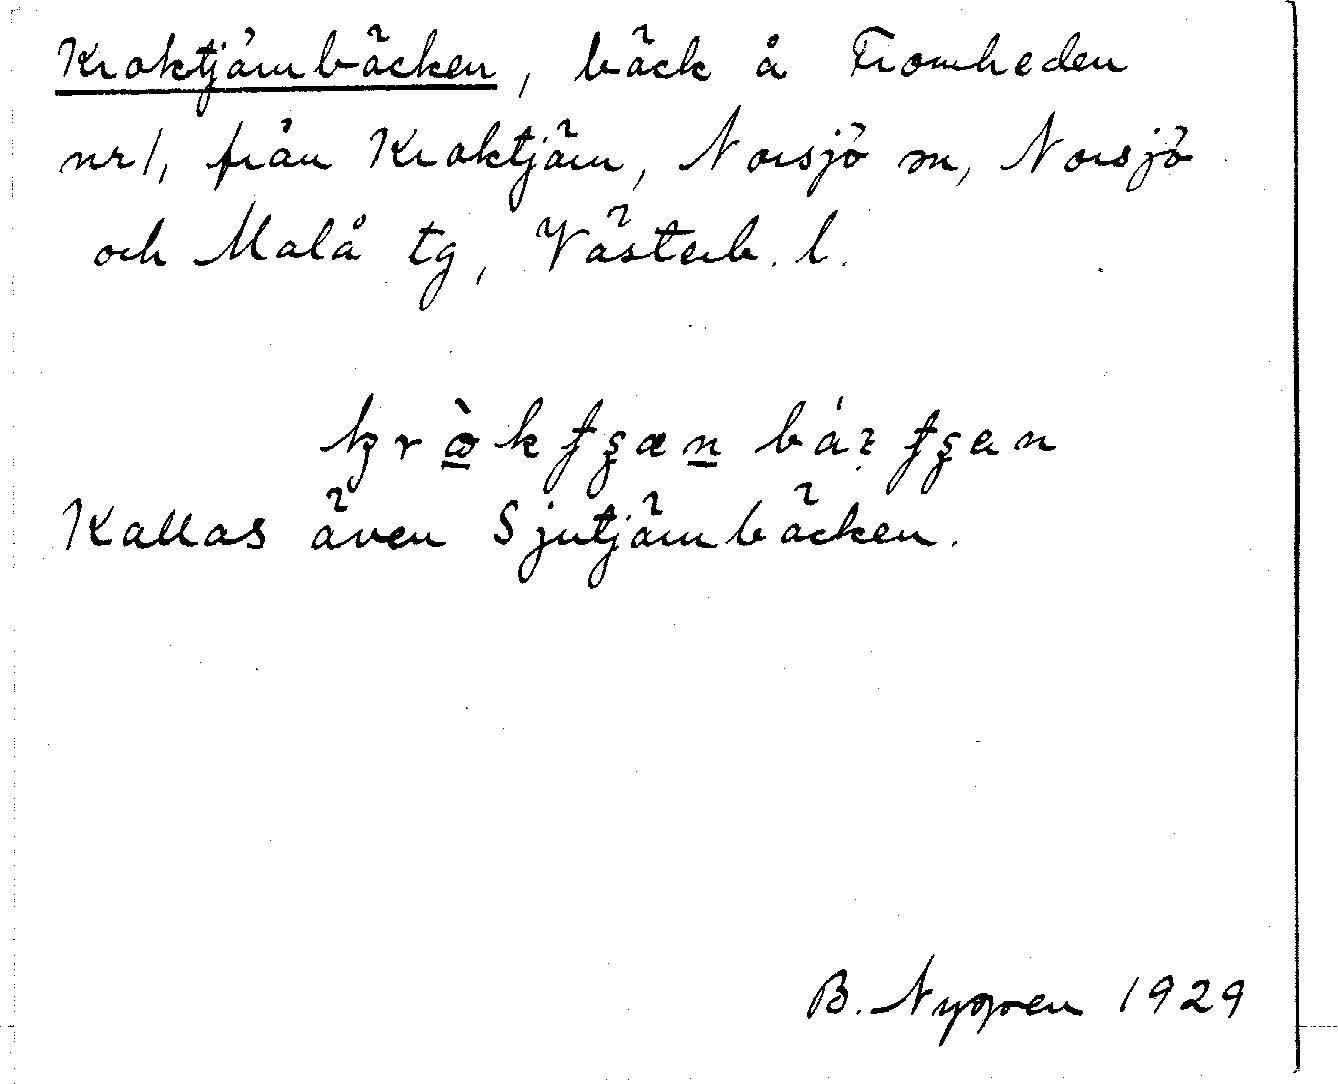 Kroktjärnbäcken, bäck å Fromheden
nr 1, från Kroktjärn, Norsjö sn, Norsjö
och Malå tg, Västerb. l.
Kallas även Sjutjärnbäcken.
B. Nygren 1929